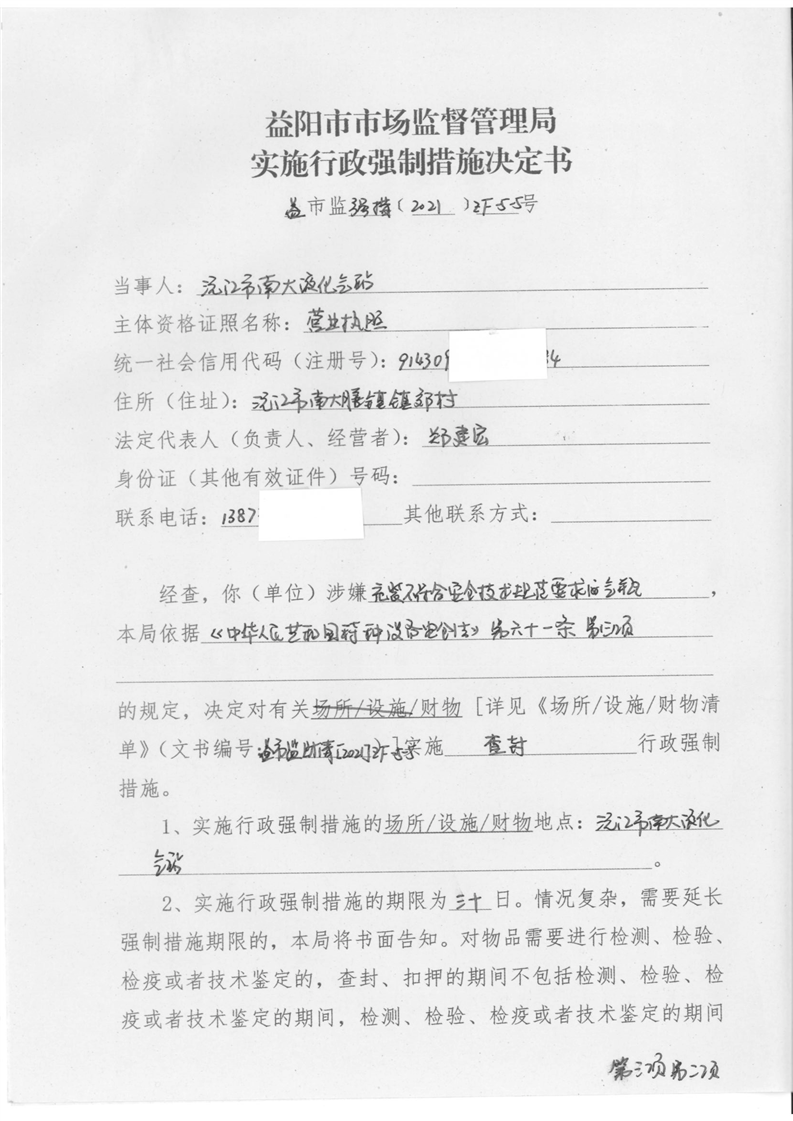 益阳市市场监督管理局
实施行政强制措施决定书
益市监强措(2021)ZF55号
当事人：沅江市南大液化气站
主体资格证照名称：营业执照
统一社会信用代码（注册号）：91430984
住所（住址）：沅江市南大膳镇镇郊村
法定代表人（负责人、经营者）：邓建宏
身份证（其他有效证件）号码：
联系电话：1387 其他联系方式：
经查，你（单位）涉嫌充装不符合安全技术规范要求的气瓶，
本局依据《中华人民共和国特种设备安全法》第六十一条第三项
的规定，决定对有关场所/设施/财物[详见《场所/设施/财物清
单》（文书编号益市监财清[2021]ZF55]实施 查封 行政强制
措施。
1、实施行政强制措施的场所/设施/财物地点：沅江市南大液化
气站。
2、实施行政强制措施的期限为三十日。情况复杂，需要延长
强制措施期限的，本局将书面告知。对物品需要进行检测、检验、
检疫或者技术鉴定的，查封、扣押的期间不包括检测、检验、检
疫或者技术鉴定的期间，检测、检验、检疫或者技术鉴定的期间
第三页第二页